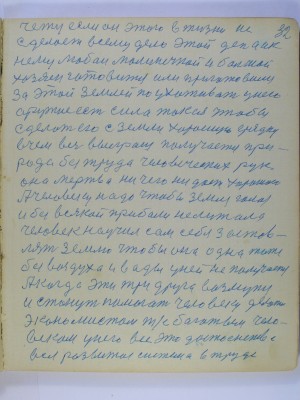 чему если он этого в жизни не
сделает всему делу этой
нему
хозяин готовится или приготовили
за этой землей поухаживать у него
есть сила такая чтобы
сделать его с земли хорошую
в чем вся выиграш получается при-
рода без труда человеческих рук
она мертва ничего не даст хорошего
А человеку надо чтобы земля
и без всякой прибыли не
человек научил сам себя застав-
лять землю чтобы она одна
без воздуха и воды у ней не получится
А когда эти три друга возьмутся
и станут помогать человеку
экономистом т/е богатым чело-
веком у него все это достоинство
вся развитая система в труде
32